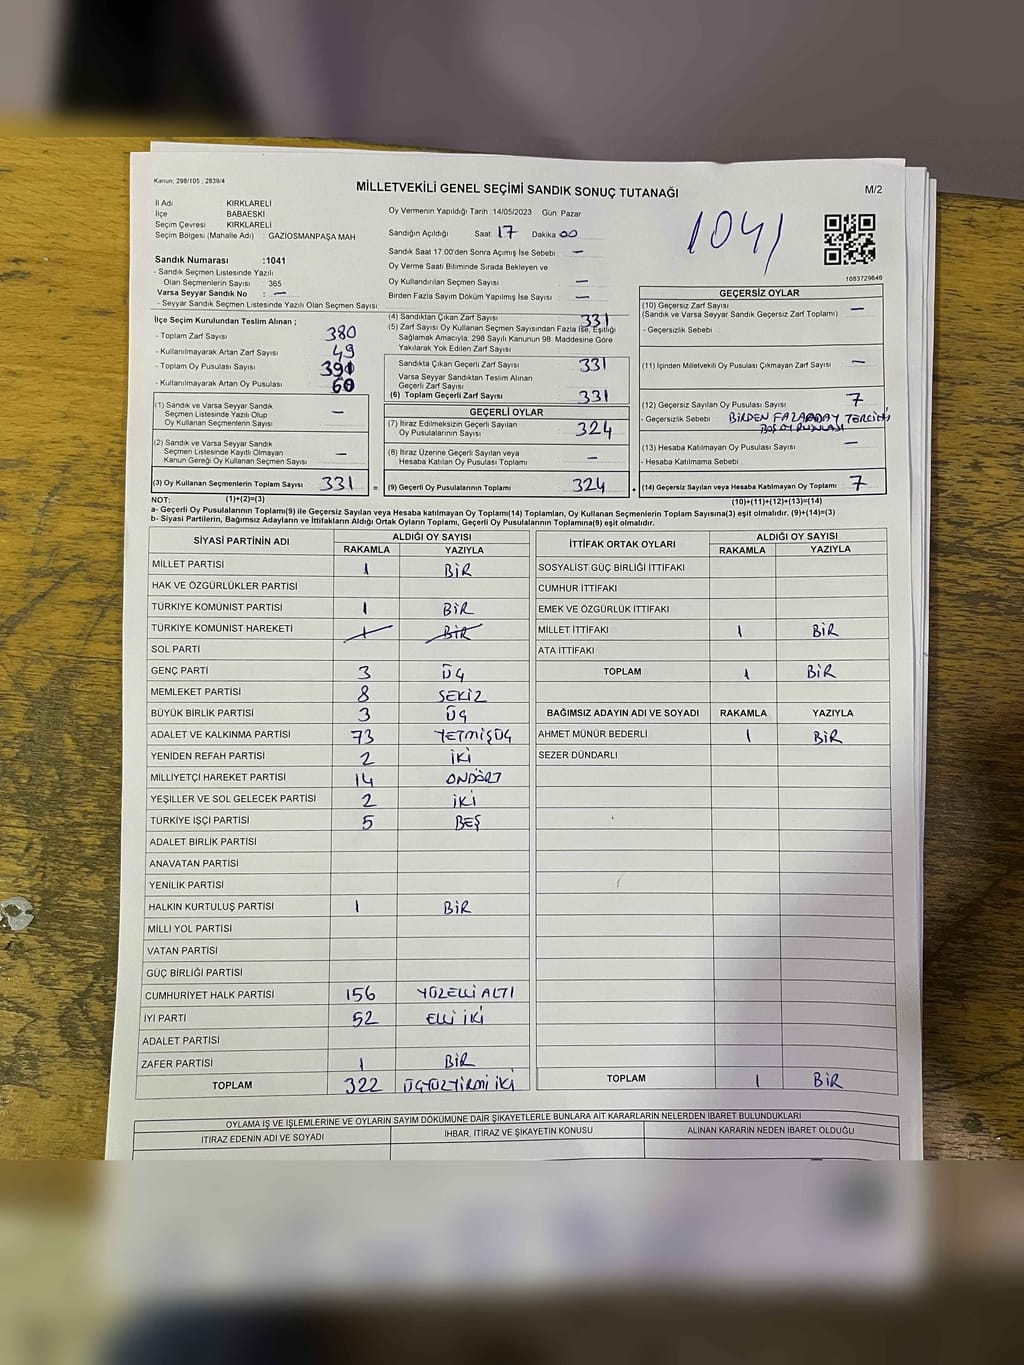 Kanun; 298/105 , 2839/4
MİLLETVEKİLİ GENEL SEÇİMİ SANDIK SONUÇ TUTANAĞI
M/2
1041
1083729646
İl Adı KIRKLARELİ
İlçe BABAESKİ
Seçim Çevresi KIRKLARELİ
Seçim Bölgesi (Mahalle Adı) : GAZİOSMANPAŞA MAH
Sandık Numarası :1041
- Sandık Seçmen Listesinde Yazılı
Olan Seçmenlerin Sayısı : 365
Varsa Seyyar Sandık No : —
- Seyyar Sandık Seçmen Listesinde Yazılı Olan Seçmen Sayısı:
Oy Vermenin Yapıldığı Tarih :14/05/2023 Gün: Pazar
Sandığın Açıldığı Saat 17 Dakika 00
Sandık Saat 17:00'den Sonra Açımış İse Sebebi —
Oy Verme Saati Bitiminde Sırada Bekleyen ve
Oy Kullandırılan Seçmen Sayısı —
Birden Fazla Sayım Döküm Yapılmış İse Sayısı —
İlçe Seçim Kurulundan Teslim Alınan ;
- Toplam Zarf Sayısı 380
- Kullanılmayarak Artan Zarf Sayısı 49
- Toplam Oy Pusulası Sayısı 391
- Kullanılmayarak Artan Oy Pusulası 60
(1) Sandık ve Varsa Seyyar Sandık
Seçmen Listesinde Yazılı Olup
Oy Kullanan Seçmenlerin Sayısı —
(2) Sandık ve Varsa Seyyar Sandık
Seçmen Listesinde Kayıtlı Olmayan
Kanun Gereği Oy Kullanan Seçmen Sayısı —
(3) Oy Kullanan Seçmenlerin Toplam Sayısı 331 =
(1)+(2)=(3)
(4) Sandıktan Çıkan Zarf Sayısı 331
(5) Zarf Sayısı Oy Kullanan Seçmen Sayısından Fazla İse, Eşitliği
Sağlamak Amacıyla, 298 Sayılı Kanunun 98. Maddesine Göre
Yakılarak Yok Edilen Zarf Sayısı
Sandıkta Çıkan Geçerli Zarf Sayısı 331
Varsa Seyyar Sandıktan Teslim Alınan
Geçerli Zarf Sayısı
(6) Toplam Geçerli Zarf Sayısı 331
GEÇERLİ OYLAR
(7) İtiraz Edilmeksizin Geçerli Sayılan
Oy Pusulalarının Sayısı 324
(8) İtiraz Üzerine Geçerli Sayılan veya
Hesaba Katılan Oy Pusulası Toplamı —
(9) Geçerli Oy Pusulalarının Toplamı 324
GEÇERSİZ OYLAR
(10) Geçersiz Zarf Sayısı
(Sandık ve Varsa Seyyar Sandık Geçersiz Zarf Toplamı) —
- Geçersizlik Sebebi
(11) İçinden Milletvekili Oy Pusulası Çıkmayan Zarf Sayısı —
(12) Geçersiz Sayılan Oy Pusulası Sayısı 7
- Geçersizlik Sebebi BİRDEN FAZLA ADAY
BOŞ OY PUSULASI
(13) Hesaba Katılmayan Oy Pusulası Sayısı —
- Hesaba Katılmama Sebebi
(14) Geçersiz Sayılan veya Hesaba Katılmayan Oy Toplamı 7
(10)+(11)+(12)+(13)=(14)
NOT:
a- Geçerli Oy Pusulalarının Toplamı(9) ile Geçersiz Sayılan veya Hesaba katılmayan Oy Toplamı(14) Toplamları, Oy Kullanan Seçmenlerin Toplam Sayısına(3) eşit olmalıdır. (9)+(14)=(3)
b- Siyasi Partilerin, Bağımsız Adayların ve İttifakların Aldığı Ortak Oyların Toplamı, Geçerli Oy Pusulalarının Toplamına(9) eşit olmalıdır.
SİYASİ PARTİNİN ADI ALDIĞI OY SAYISI
RAKAMLA YAZIYLA
MİLLET PARTİSİ 1 BİR
HAK VE ÖZGÜRLÜKLER PARTİSİ
TÜRKİYE KOMÜNİST PARTİSİ 1 BİR
TÜRKİYE KOMÜNİST HAREKETİ 1 BİR
SOL PARTİ
GENÇ PARTİ 3 ÜÇ
MEMLEKET PARTİSİ 8 SEKİZ
BÜYÜK BİRLİK PARTİSİ 3 ÜÇ
ADALET VE KALKINMA PARTİSİ 73 YETMİŞÜÇ
YENİDEN REFAH PARTİSİ 2 İKİ
MİLLİYETÇİ HAREKET PARTİSİ 14 ONDÖRT
YEŞİLLER VE SOL GELECEK PARTİSİ 2 İKİ
TÜRKİYE İŞÇİ PARTİSİ 5 BEŞ
ADALET BİRLİK PARTİSİ
ANAVATAN PARTİSİ
YENİLİK PARTİSİ
HALKIN KURTULUŞ PARTİSİ 1 BİR
MİLLİ YOL PARTİSİ
VATAN PARTİSİ
GÜÇ BİRLİĞİ PARTİSİ
CUMHURİYET HALK PARTİSİ 156 YÜZELLİ ALTI
İYİ PARTİ 52 ELLİ İKİ
ADALET PARTİSİ
ZAFER PARTİSİ 1 BİR
TOPLAM 322 ÜÇYÜZYİRMİ İKİ
İTTİFAK ORTAK OYLARI ALDIĞI OY SAYISI
RAKAMLA YAZIYLA
SOSYALİST GÜÇ BİRLİĞİ İTTİFAKI
CUMHUR İTTİFAKI
EMEK VE ÖZGÜRLÜK İTTİFAKI
MİLLET İTTİFAKI 1 BİR
ATA İTTİFAKI
TOPLAM 1 BİR
BAĞIMSIZ ADAYIN ADI VE SOYADI RAKAMLA YAZIYLA
AHMET MÜNÜR BEDERLİ 1 BİR
SEZER DÜNDARLI
TOPLAM 1 BİR
OYLAMA İŞ VE İŞLEMLERİNE VE OYLARIN SAYIM DÖKÜMÜNE DAİR ŞİKAYETLERLE BUNLARA AİT KARARLARIN NELERDEN İBARET BULUNDUKLARI
İTİRAZ EDENİN ADI VE SOYADI İHBAR, İTİRAZ VE ŞİKAYETİN KONUSU ALINAN KARARIN NEDEN İBARET OLDUĞU